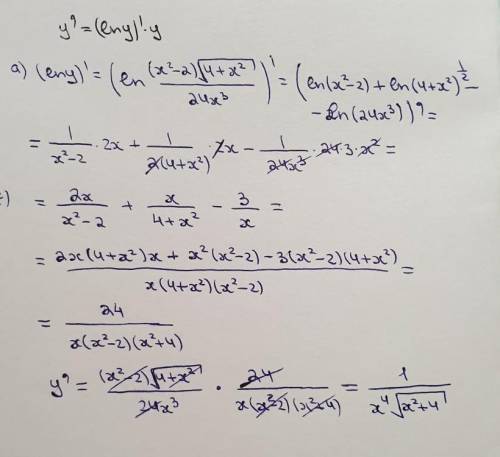 y' = (lny)'·y
a) (lny)' = (ln (x²-2)√(4+x²) / 24x³)' = (ln(x²-2) + ln(4+x²)^(1/2) -
- ln(24x³))' =
= 1/(x²-2) · 2x + 1/(2(4+x²)) · 2x - 1/(24x³) · 24·3·x² =
= 2x/(x²-2) + x/(4+x²) - 3/x =
= (2x(4+x²)x + x²(x²-2) - 3(x²-2)(4+x²)) / (x(4+x²)(x²-2)) =
= 24 / (x(x²-2)(x²+4))
y' = (x²-2)√(4+x²) / 24x³ · 24 / (x(x²-2)(x²+4)) = 1 / (x⁴√(x²+4))